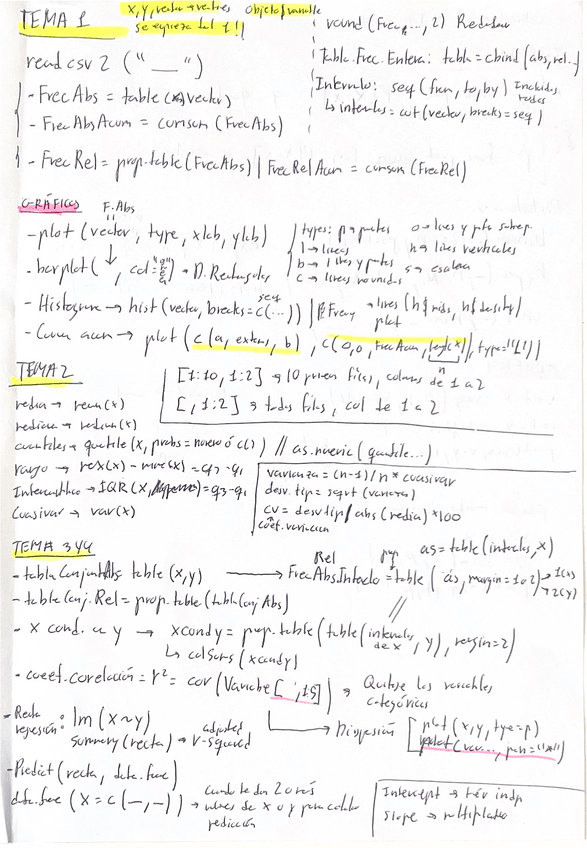 TEMA 1
x, y, vector → vectores objeto/variable
se expresa tal 1!!
read csv 2 ("__")
- FrecAbs = table(x)vector)
- FrecAbsAcum = cumsum (FrecAbs)
- FrecRel = prop.table(FrecAbs) | FrecRelAcum = cumsum(FrecRel)
round (Frec,..., 2) Redondear
Tabla.Frec.Entera: tabla = cbind (abs, rel..)
Intervalo: seq (from, to, by)
↳ intervalos = cut (vector, breaks = seq)
GRÁFICOS
F.Abs
- plot (vector, type, xlab, ylab)
- barplot ( , col = ) → D. Rectangulos
- Histograma → hist (vector, breaks = c(...))
seq
types: p → puntos
l → lineas
b → lineas y puntos
c →
o → lineas y ptos superp.
h → lineas verticales
s → escalera
→ lines (h$mids, h$density)
plot
- Curva acum → plot (c(a, extens, b), c(0,0, FrecAcum, length(x)), type="l")
n
TEMA 2
[1:10, 1:2] → 10 primeras filas, columnas de 1 a 2
[ , 1:2] → todas filas, col de 1 a 2
media → mean(x)
mediana → median(x)
cuantiles → quantile (x, probs = numero ó c()) // as.numeric (quantile...)
rango → max(x) - min(x)
Intercuartílico → IQR (x, ) = q3 - q1
Cuasivar → var(x)
varianza = (n-1)/n * cuasivar
desv. tip = sqrt (varianza)
CV = desvtip/abs (media) * 100
coef. variacion
TEMA 3 y 4
- tablaConjuntAbs table (x,y)
- tablaConj.Rel = prop.table (tablaConjAbs)
as = table (intervalos, x)
Rel prop
→ FrecAbsIntervalo = table (as, margin = 1 o 2) → 1(x)
→ 2(y)
- x cond. a y → xcondy = prop.table (table (intervalos de x, y), margin = 2)
↳ colSums (xcondy)
- coeef. corelación = r² = cor (Variable [ , 15]) → Quitarse las variables
categóricas
- Recta regresión: lm (x ~ y)
summary (recta) → adjusted r-squared
→ Dispersión [ plot (x, y, type = p)
- Predict (recta, data.frame)
data.frame (X = c(-, -)) → cuando te dan 2 o más
valores de x o y para calcular
predicción
Intercept → tér indp
slope → multiplicativo